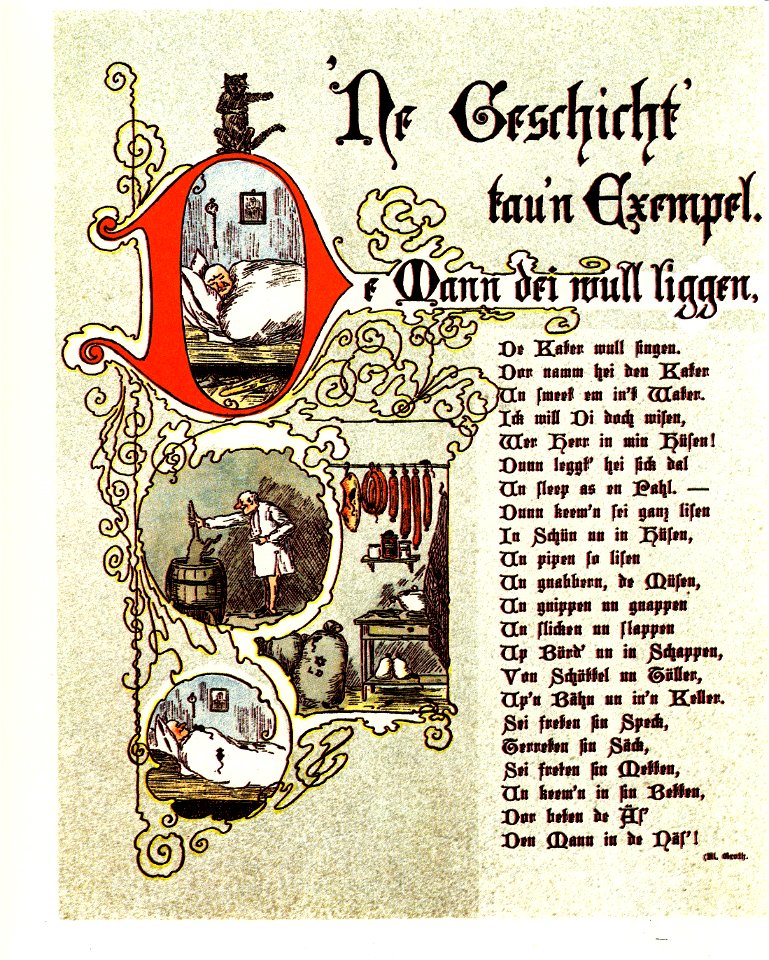 'Ne Geschicht'
tau'n Exempel.
De Mann dei wull liggen,
De Kater wull singen.
Dor namm hei den Kater
Un smeet em in't Water.
Ick will Di doch wisen,
Wer Herr in min Hüsen!
Dunn leggt' hei sick dal
Un sleep as en Pahl. —
Dunn keem'n sei ganz lisen
In Schün un in Hüsen,
Un pipen so lisen
Un gnabbern, de Müsen,
Un gnippen un gnappen
Un slicken un slappen
Up Börd' un in Schappen,
Von Schöttel un Töller,
Up'n Bähn un in'n Keller.
Sei freten sin Speck,
Terreten sin Säck,
Sei freten sin Metten,
Un keem'n in sin Betten,
Dor beten de Äs'
Den Mann in de Näs'!
(Kl. Groth.